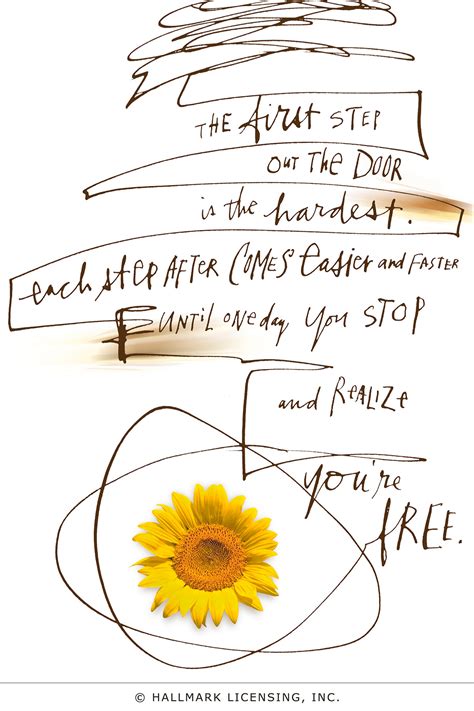 THE first STEP
OUT THE DOOR
is the hardest.
each step AFTER COMES easier and FASTER
UNTIL one day you STOP
and REALIZE
you're
FREE.
© HALLMARK LICENSING, INC.